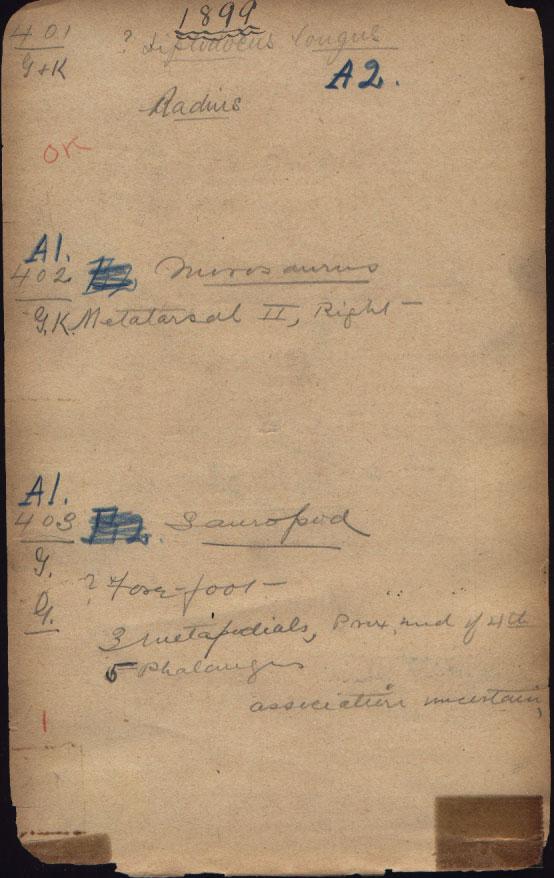 1899
401 ? Diplodocus longus
G+K
A2.
Radius
OK
A1.
402 Morosaurus
G.K. Metatarsal II, Right
A1.
403 Sauropod
G.
? Fore-foot
G.
3 metapodials, Prox. end of 4th
5 Phalanges
association uncertain,
1